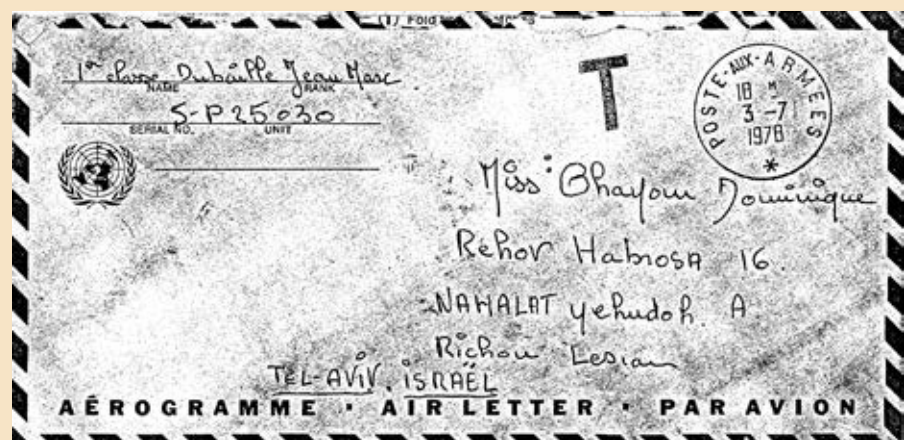 (1) Fold
1re classe Dubaille Jean Marc
NAME RANK
S-P 25030
SERIAL NO. UNIT
T
POSTE-AUX-ARMEES
18 M
3 -7
1978
*
Miss Dominique
Rehov Habrosa 16.
NAHALAT yehudah. A
Richon Lesian
TEL-AVIV. ISRAËL
AÉROGRAMME · AIR LETTER · PAR AVION